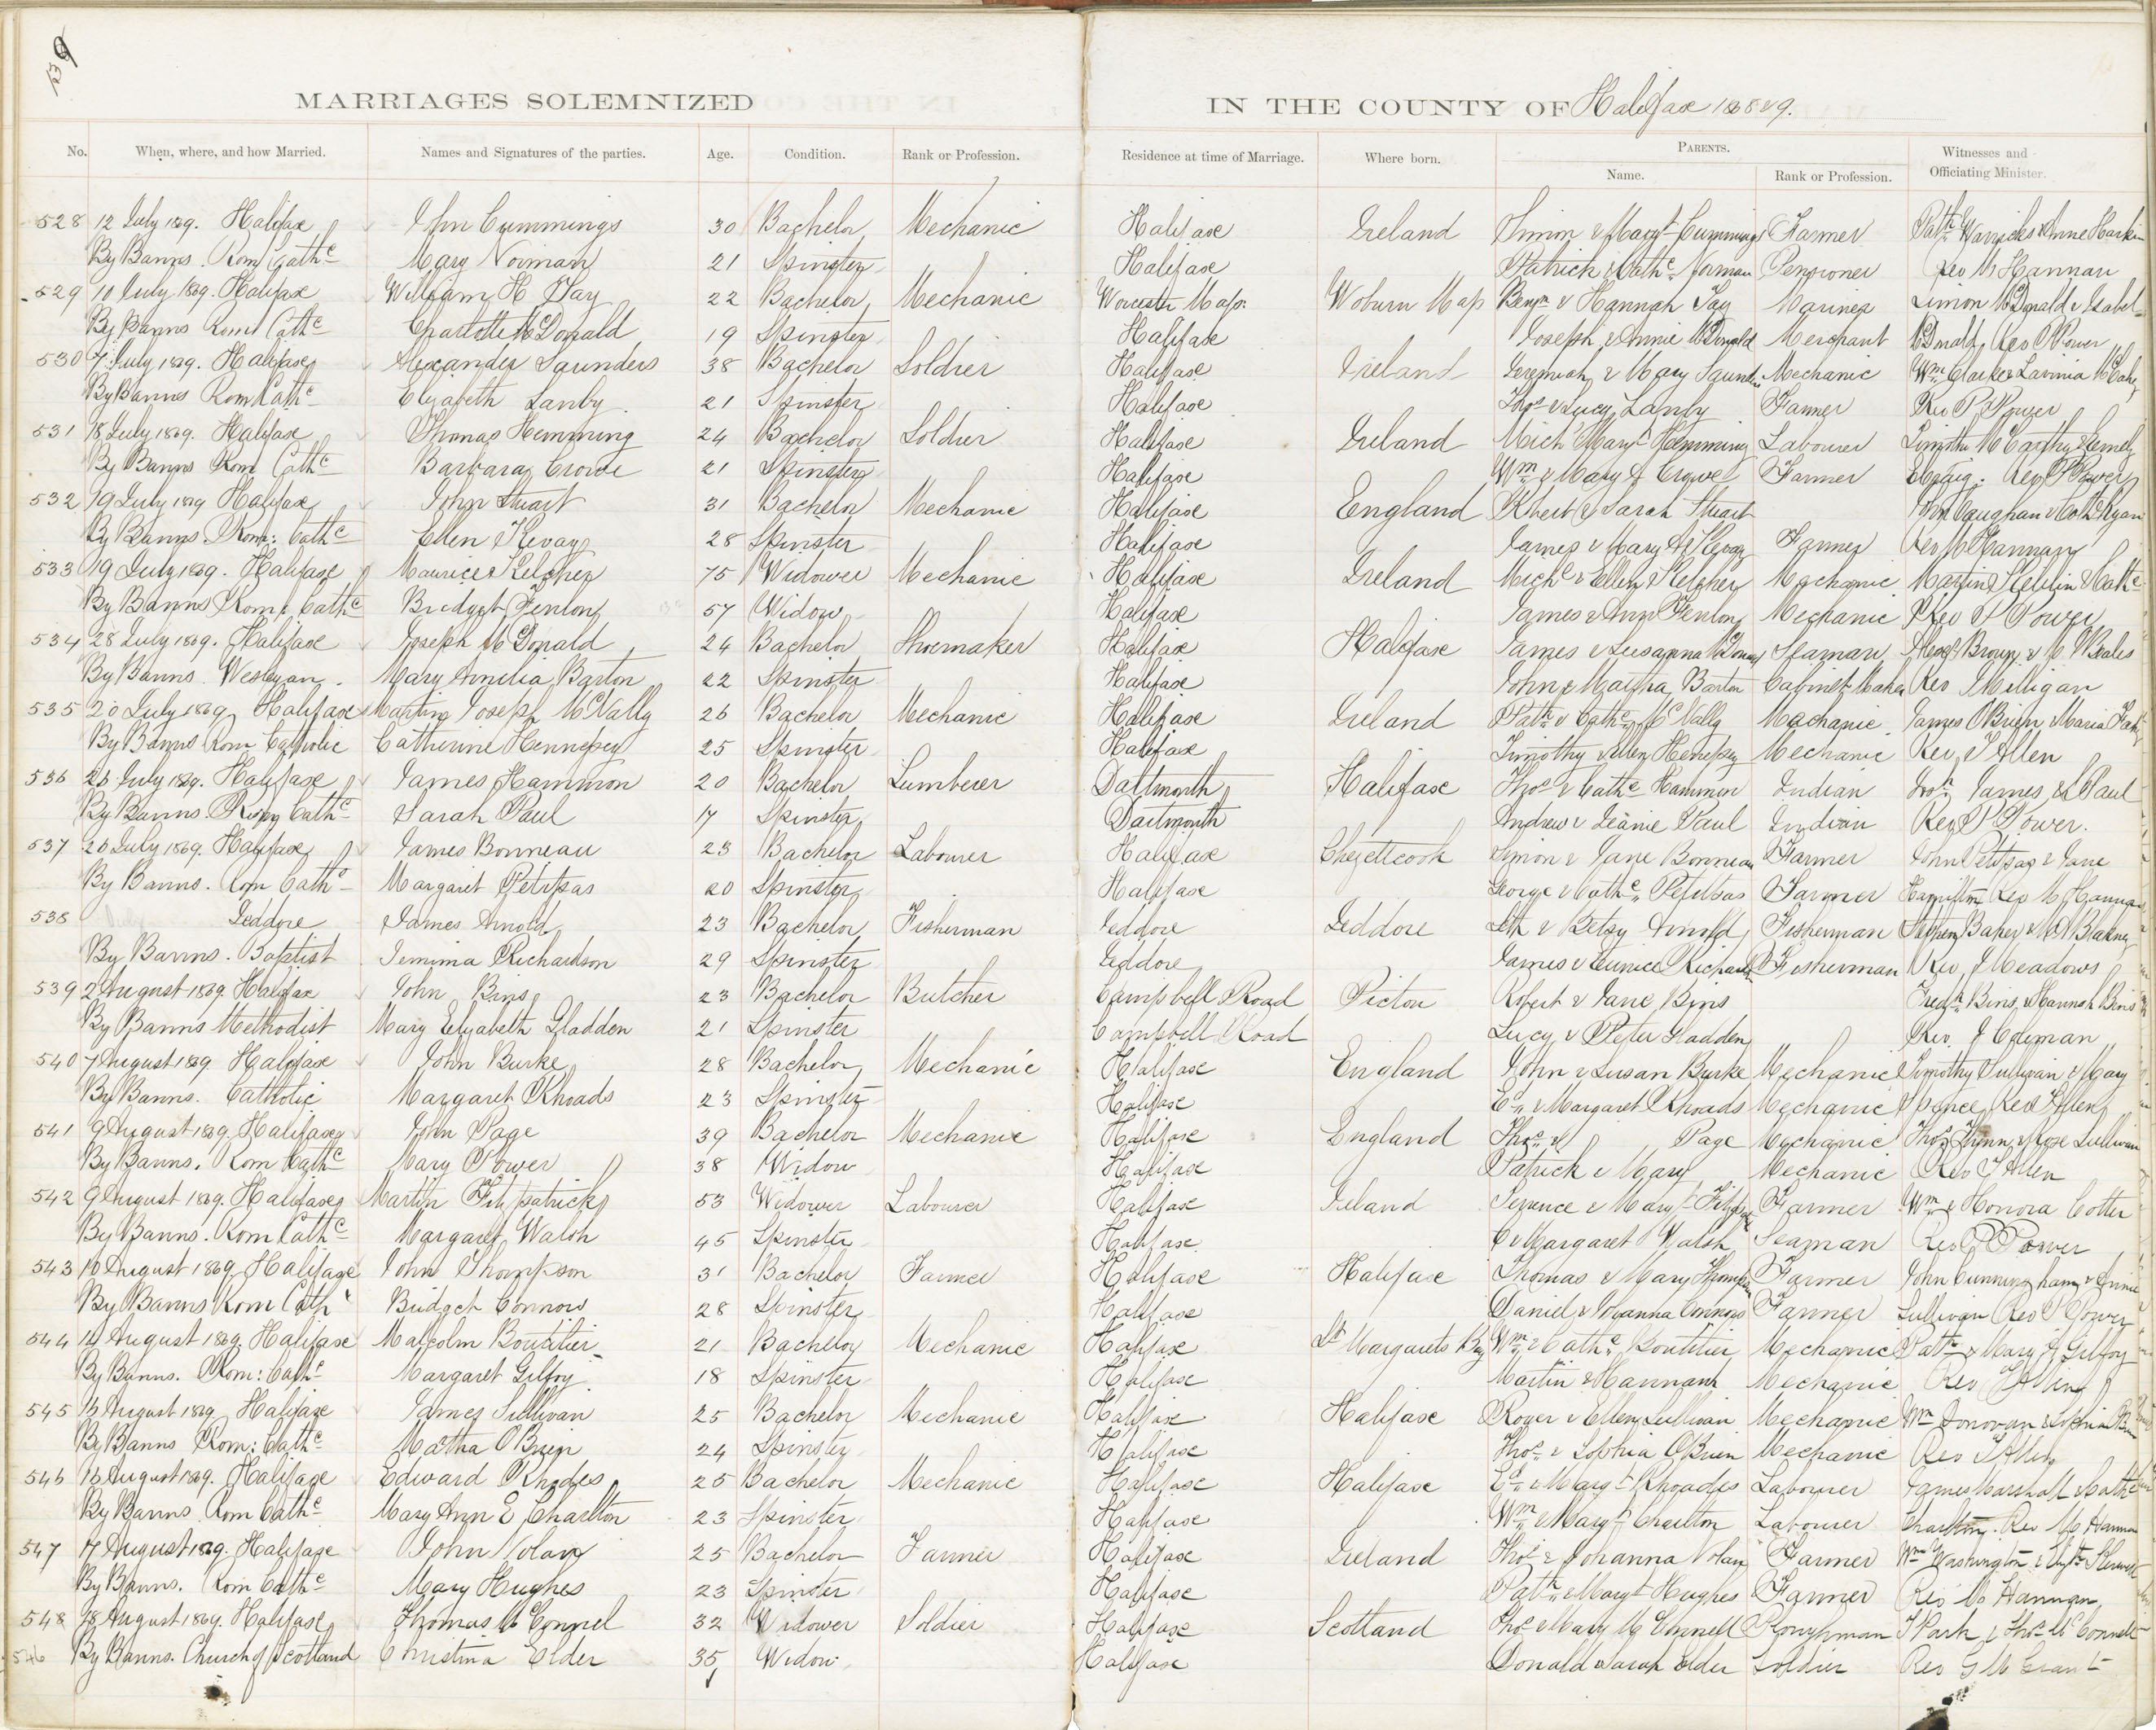 139
MARRIAGES SOLEMNIZED IN THE COUNTY OF Halifax 1868 & 9.
No. When, where, and how Married. Names and Signatures of the parties. Age. Condition. Rank or Profession. Residence at time of Marriage. Where born. PARENTS. Witnesses and Officiating Minister.
Name. Rank or Profession.
528 12 July 1869. Halifax John Cummings 30 Bachelor Mechanic Halifax Ireland Simon & Margt Cummings Farmer Patk Warricks & Anne Harkin
By Banns. Rom Cathc Mary Norman 21 Spinster Halifax Patrick & Cathc Norman Pensioner Rev Mr Hannan
529 10 July 1869. Halifax William H Fay 22 Bachelor Mechanic Worcester Mass: Woburn Mass Benjn & Hannah Fay Mariner Simon McDonald & Isabel
By Banns Rom Cathc Charlotte McDonald 19 Spinster Halifax Joseph & Annie McDonald Merchant McDonald, Rev P Power
530 7 July 1869. Halifax Alexander Saunders 38 Bachelor Soldier Halifax Ireland Jeremiah & Mary Saunders Mechanic Wm Clarke & Lavinia McCabe
By Banns Rom Cathc Elizabeth Lanby 21 Spinster Halifax Thos & Lucy Lanby Farmer Rev P. Power
531 18 July 1869. Halifax Thomas Hemming 24 Bachelor Soldier Halifax Ireland Mich Margt Hemming Labourer Timothy McCarthy & Emely
By Banns Rom Cathc Barbara Crowe 21 Spinster Halifax Wm & Mary A Crowe Farmer Craig. Rev P Power
532 19 July 1869 Halifax John Stuart 31 Bachelor Mechanic Halifax England Robert & Sarah Stuart John Vaughan & Cathc Ryan
By Banns. Rom: Cathc Ellen Kevan 28 Spinster Halifax James & Mary A Farmer Rev M Hannan
533 19 July 1869. Halifax Maurice Kelcher 75 Widower Mechanic Halifax Ireland Michl & Ellen Kelcher Mechanic Martin & Cathc
By Banns Rom: Cathc Bridget Fenlon 57 Widow Halifax James & Ann Fenlon Mechanic Rev P Power
534 28 July 1869. Halifax Joseph McDonald 24 Bachelor Shoemaker Halifax Halifax James & Susanna McDonald Seaman Alexr Brown & C W Beales
By Banns. Wesleyan. Mary Amelia Barton 22 Spinster Halifax John & Martha Barton Cabinet Maker Rev Milligan
535 20 July 1869 Halifax Martin Joseph McNally 26 Bachelor Mechanic Halifax Ireland Patk & Cathc McNally Mechanic James OBrien & Maria
By Banns Rom Catholic Catherine Hennesey 25 Spinster Halifax Timothy & Ellen Henesey Mechanic Rev T Allen
536 26 July 1869. Halifax James Hammon 20 Bachelor Lumberer Dartmouth Halifax Thos & Cathc Hammon Indian Jno James & S Paul
By Banns. Rom Cathc Sarah Paul 17 Spinster Dartmouth Andrew & Jeanie Paul Indian Rev P Power.
537 26 July 1869. Halifax James Bonneau 23 Bachelor Labourer Halifax Chezettcook Simon & Jane Bonneau Farmer John Petitpas & Jane
By Banns. Rom Cathc Margaret Petitpas 20 Spinster Halifax George & Cathc Petitpas Farmer Hamilton Rev M Hannan
538 Jeddore James Arnold 23 Bachelor Fisherman Jeddore Jeddore Seth & Betsy Arnold Fisherman Stephen Baker & M A Blakney
By Banns. Baptist Jemima Richardson 29 Spinster Jeddore James & Eunice Richardson Fisherman Rev J Meadows
539 2 August 1869. Halifax John Bins 23 Bachelor Butcher Campbell Road Pictou Robert & Jane Bins Fredk Bins & Hannah Bins
By Banns Methodist Mary Elizabeth Gladden 21 Spinster Campbell Road Lucy & Peter Gladden Rev. J Coleman
540 7 August 1869 Halifax John Burke 28 Bachelor Mechanic Halifax England John & Susan Burke Mechanic Timothy Sullivan & Mary
By Banns. Catholic Margaret Rhoads 23 Spinster Halifax Ed & Margaret Rhoads Mechanic Spence, Rev Allen
541 9 August 1869. Halifax John Page 39 Bachelor Mechanic Halifax England Thos & Page Mechanic Thos Flynn & Rose Sullivan
By Banns. Rom Cathc Mary Power 38 Widow Halifax Patrick & Mary Mechanic Rev T Allen
542 9 August 1869. Halifax Martin Fitzpatrick 53 Widower Labourer Halifax Ireland Terrence & Margt Fitzpatk Farmer Wm & Honora Cotter
By Banns. Rom Cathc Margaret Walsh 45 Spinster Halifax C & Margaret Walsh Seaman Rev P Power
543 10 August 1869. Halifax John Thompson 31 Bachelor Farmer Halifax Halifax Thomas & Mary Thompson Farmer John Cunningham & Annie
By Banns Rom Cath Bridget Connors 28 Spinster Halifax Daniel & Johanna Connors Farmer Sullivan Rev P Power
544 14 August 1869. Halifax Malcolm Boutilier 21 Bachelor Mechanic Halifax St Margarets Bay Wm & Cathc Boutilier Mechanic Patk & Mary J Gilfoy
By Banns. Rom: Cathc Margaret Gilfoy 18 Spinster Halifax Martin & Hannah Mechanic Rev T Allen
545 16 August 1869 Halifax James Sullivan 25 Bachelor Mechanic Halifax Halifax Roger & Ellen Sullivan Mechanic Wm Donovan & Sophia
By Banns Rom: Cathc Martha O'Brien 24 Spinster Halifax Thos & Sophia O'Brien Mechanic Rev T Allen
546 16 August 1869. Halifax Edward Rhodes 25 Bachelor Mechanic Halifax Halifax Ed & Margt Rhoades Labourer James Marshall & Cathc
By Banns Rom Cathc Mary Ann E Charlton 23 Spinster Halifax Wm & Margt Charlton Labourer Charlton. Rev M Hannan
547 17 August 1869. Halifax John Nolan 25 Bachelor Farmer Halifax Ireland Thos & Johanna Nolan Farmer Wm Washington &
By Banns. Rom Cathc Mary Hughes 23 Spinster Halifax Patk & Margt Hughes Farmer Rev Mc Hannan
548 18 August 1869. Halifax Thomas McConnel 32 Widower Soldier Halifax Scotland Thos & Mary McConnell Ploughman J Park & Thos McConnell
546 By Banns. Church of Scotland Christina Elder 35 Widow Halifax Donald & Sarah Elder Soldier Rev G M Grant